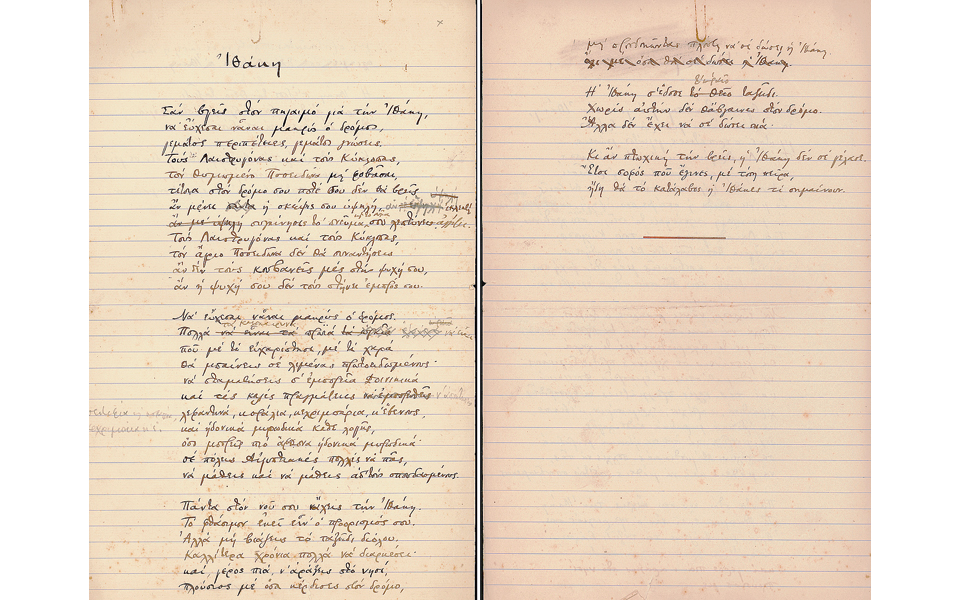 Ἰθάκη
Σὰν βγεῖς στὸν πηγαιμὸ γιὰ τὴν Ἰθάκη,
νὰ εὔχεσαι νἆναι μακρὺς ὁ δρόμος,
γεμάτος περιπέτειες, γεμάτος γνώσεις.
Τοὺς Λαιστρυγόνας καὶ τοὺς Κύκλωπας,
τὸν θυμωμένο Ποσειδῶνα μὴ φοβᾶσαι,
τέτοια στὸν δρόμο σου ποτέ σου δὲν θὰ βρεῖς,
ἂν μέν' ἡ σκέψις σου ὑψηλή, ἂν ἐκλεκτὴ
συγκίνησις τὸ πνεῦμα
Τοὺς Λαιστρυγόνας καὶ τοὺς Κύκλωπας,
τὸν ἄγριο Ποσειδῶνα δὲν θὰ συναντήσεις
ἂν δὲν τοὺς κουβανεῖς μὲς στὴν ψυχή σου,
ἂν ἡ ψυχή σου δὲν τοὺς στήνει ἐμπρός σου.
Νὰ εὔχεσαι νἆναι μακρὺς ὁ δρόμος.
Πολλὰ τὰ καλοκαιρινὰ πρωϊὰ νὰ εἶναι
ποῦ μὲ τί εὐχαρίστησι, μὲ τί χαρὰ
θὰ μπαίνεις σὲ λιμένας πρωτοειδωμένους·
νὰ σταματήσεις σ' ἐμπορεῖα Φοινικικὰ
καὶ τὲς καλὲς πραγμάτειες ν' ἀποκτήσεις,
σεντέφια καὶ κοράλλια,
κεχριμπάρια κ' ἔβενους,
καὶ ἡδονικὰ μυρωδικὰ κάθε λογῆς,
ὅσο μπορεῖς πιὸ ἄφθονα ἡδονικὰ μυρωδικά·
σὲ πόλεις Αἰγυπτιακὲς πολλὲς νὰ πᾷς,
νὰ μάθεις καὶ νὰ μάθεις ἀπ' τοὺς σπουδασμένους.
Πάντα στὸν νοῦ σου νἄχεις τὴν Ἰθάκη.
Τὸ φθάσιμον ἐκεῖ εἶν' ὁ προορισμός σου.
Ἀλλὰ μὴ βιάζεις τὸ ταξεῖδι διόλου.
Καλλίτερα χρόνια πολλὰ νὰ διαρκέσει·
καὶ γέρος πιὰ ν' ἀράξεις στὸ νησί,
πλούσιος μὲ ὅσα κέρδισες στὸν δρόμο,
μὴ προσδοκῶντας πλούτη νὰ σὲ δώσει ἡ Ἰθάκη.
Ἡ Ἰθάκη σ' ἔδωσε τὸ ὡραῖο ταξεῖδι.
Χωρὶς αὐτὴν δὲν θἄβγαινες στὸν δρόμο.
Ἄλλα δὲν ἔχει νὰ σὲ δώσει πιά.
Κι ἂν πτωχικὴ τὴν βρεῖς, ἡ Ἰθάκη δὲν σὲ γέλασε.
Ἔτσι σοφὸς ποῦ ἔγινες, μὲ τόση πεῖρα,
ἤδη θὰ τὸ κατάλαβες ἡ Ἰθάκες τί σημαίνουν.